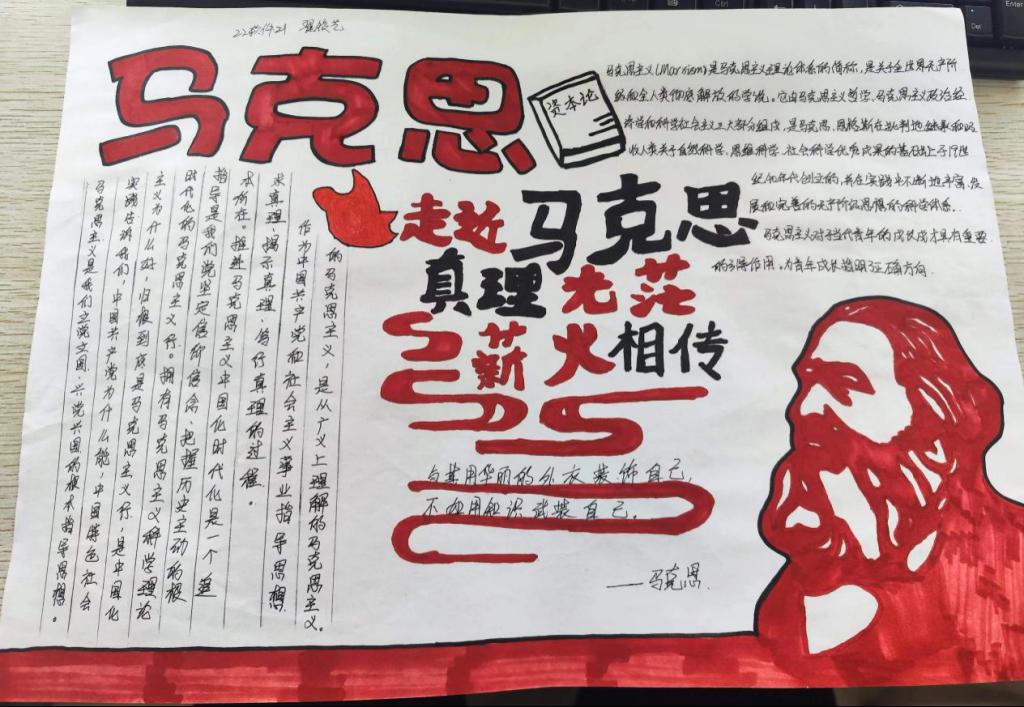 22软件21
马克思
资本论
马克思主义(Marxism)是马克思主义理论体系的简称,是关于全世界无产阶
级和全人类彻底解放的学说。它由马克思主义哲学、马克思主义政治经
济学和科学社会主义三大部分组成,是马克思、恩格斯在批判地继承和吸
收人类关于自然科学、思维科学、社会科学优秀成果的基础上于19世
纪40年代创立的,并在实践中不断地丰富、发
展和完善的无产阶级思想的科学体系.
马克思主义对于当代青年的成长成才具有重要
的引导作用,为青年成长指明正确方向.
走近马克思
真理光茫
薪火相传
与其用华丽的外衣装饰自己,
不如用知识武装自己.
——马克思.
的马克思主义,是从广义上理解的马克思主义。
作为中国共产党和社会主义事业指导思想
求真理、揭示真理、笃行真理的过程。
本所在。推进马克思主义中国化时代化是一个追
指导是我们党坚定信仰信念、把握历史主动的根
时代化的马克思主义行。拥有马克思主义科学理论
主义为什么好,归根到底是马克思主义行,是中国化
实践告诉我们,中国共产党为什么能,中国特色社会
马克思主义是我们立党立国、兴党兴国的根本指导思想。